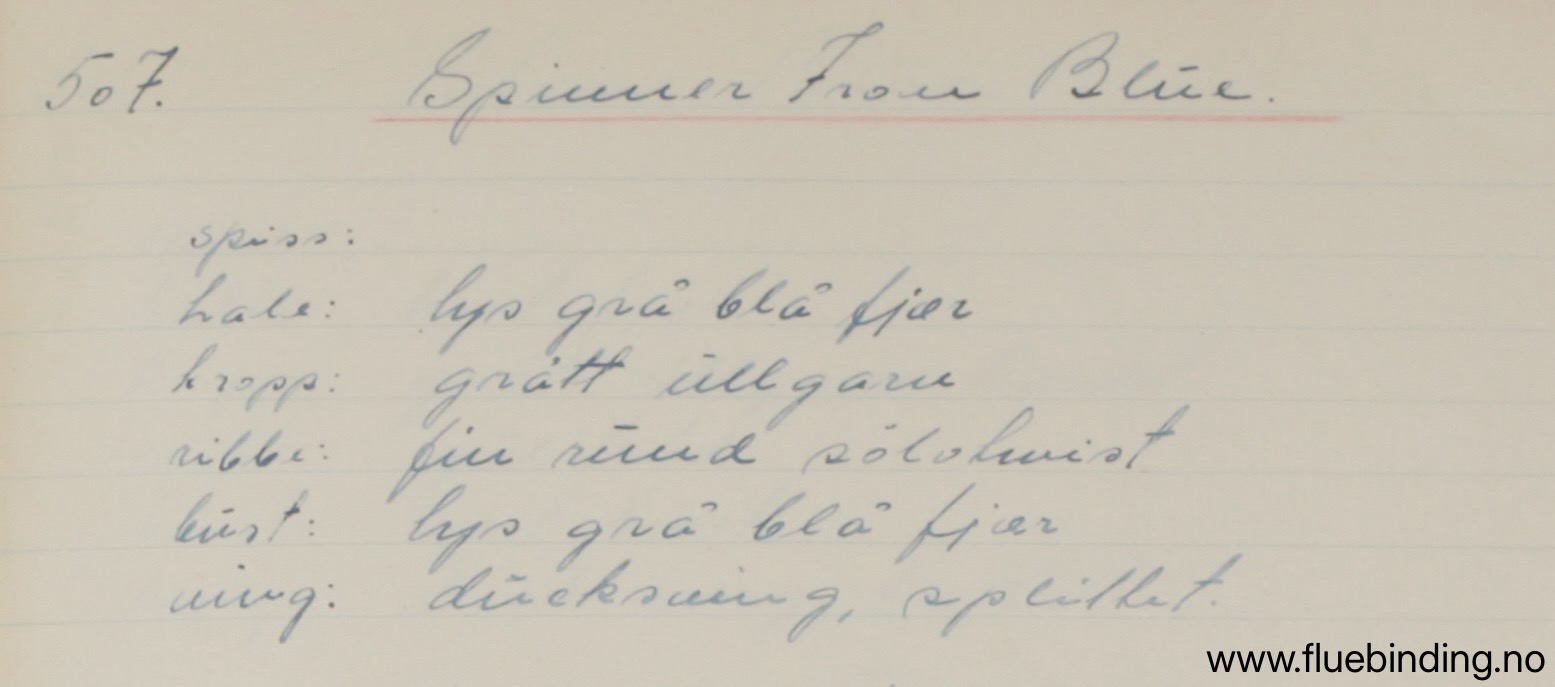 507. Spinner Iron Blue.
spiss:
hale: lys grå blå fjær
kropp: grått ullgarn
ribbe: fin rund sølvtwist
bust: lys grå blå fjær
ving: duckswing, splittet.
www.fluebinding.no